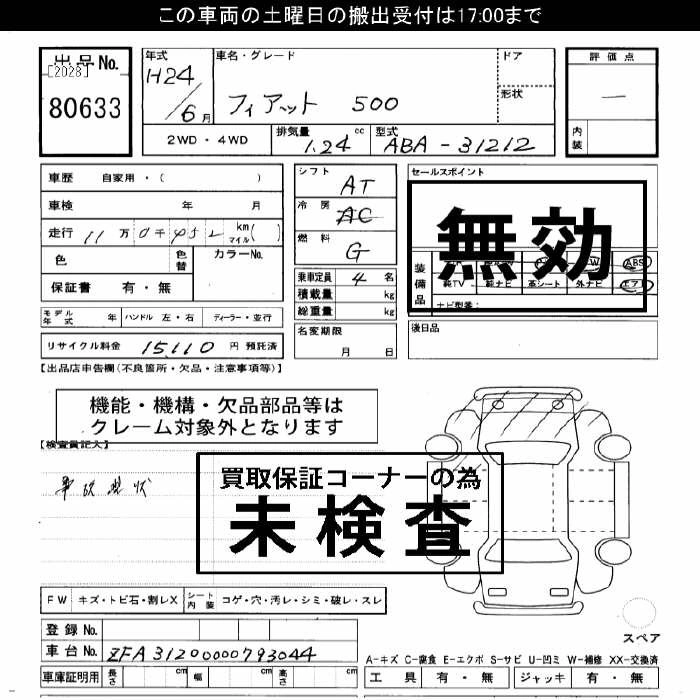 この車両の土曜日の搬出受付は17:00まで
出品No.
[2028]
80633
年式
H24/6月
車名・グレード
フィアット 500
ドア
形状
評価点
—
内装
2WD・4WD
排気量 1.24 cc
型式 ABA-31212
車歴 自家用・( )
車検 年 月
走行 11万0千452 km マイル( )
色 色替 カラーNo.
保証書 有・無
モデル年式 年 ハンドル 左・右 ディーラー・並行
リサイクル料金 15,110 円 預託済
シフト AT
冷房 AC
燃料 G
乗車定員 4 名
積載量 kg
総重量 kg
名変期限 月 日
セールスポイント
無効
装備品
ABS
純TV 純ナビ 革シート 外ナビ エアB
ナビ型番:
後日品
【出品店申告欄(不良箇所・欠品・注意事項等)】
機能・機構・欠品部品等は
クレーム対象外となります
【検査員記入】
事故現状
買取保証コーナーの為
未検査
FW キズ・トビ石・割レX
シート内装 コゲ・穴・汚レ・シミ・破レ・スレ
登録No.
車台No. ZFA31200000793044
車庫証明用 長さ cm 幅 cm 高さ cm
スペア
A-キズ C-腐食 E-エクボ S-サビ U-凹ミ W-補修 XX-交換済
工具 有・無 ジャッキ 有・無